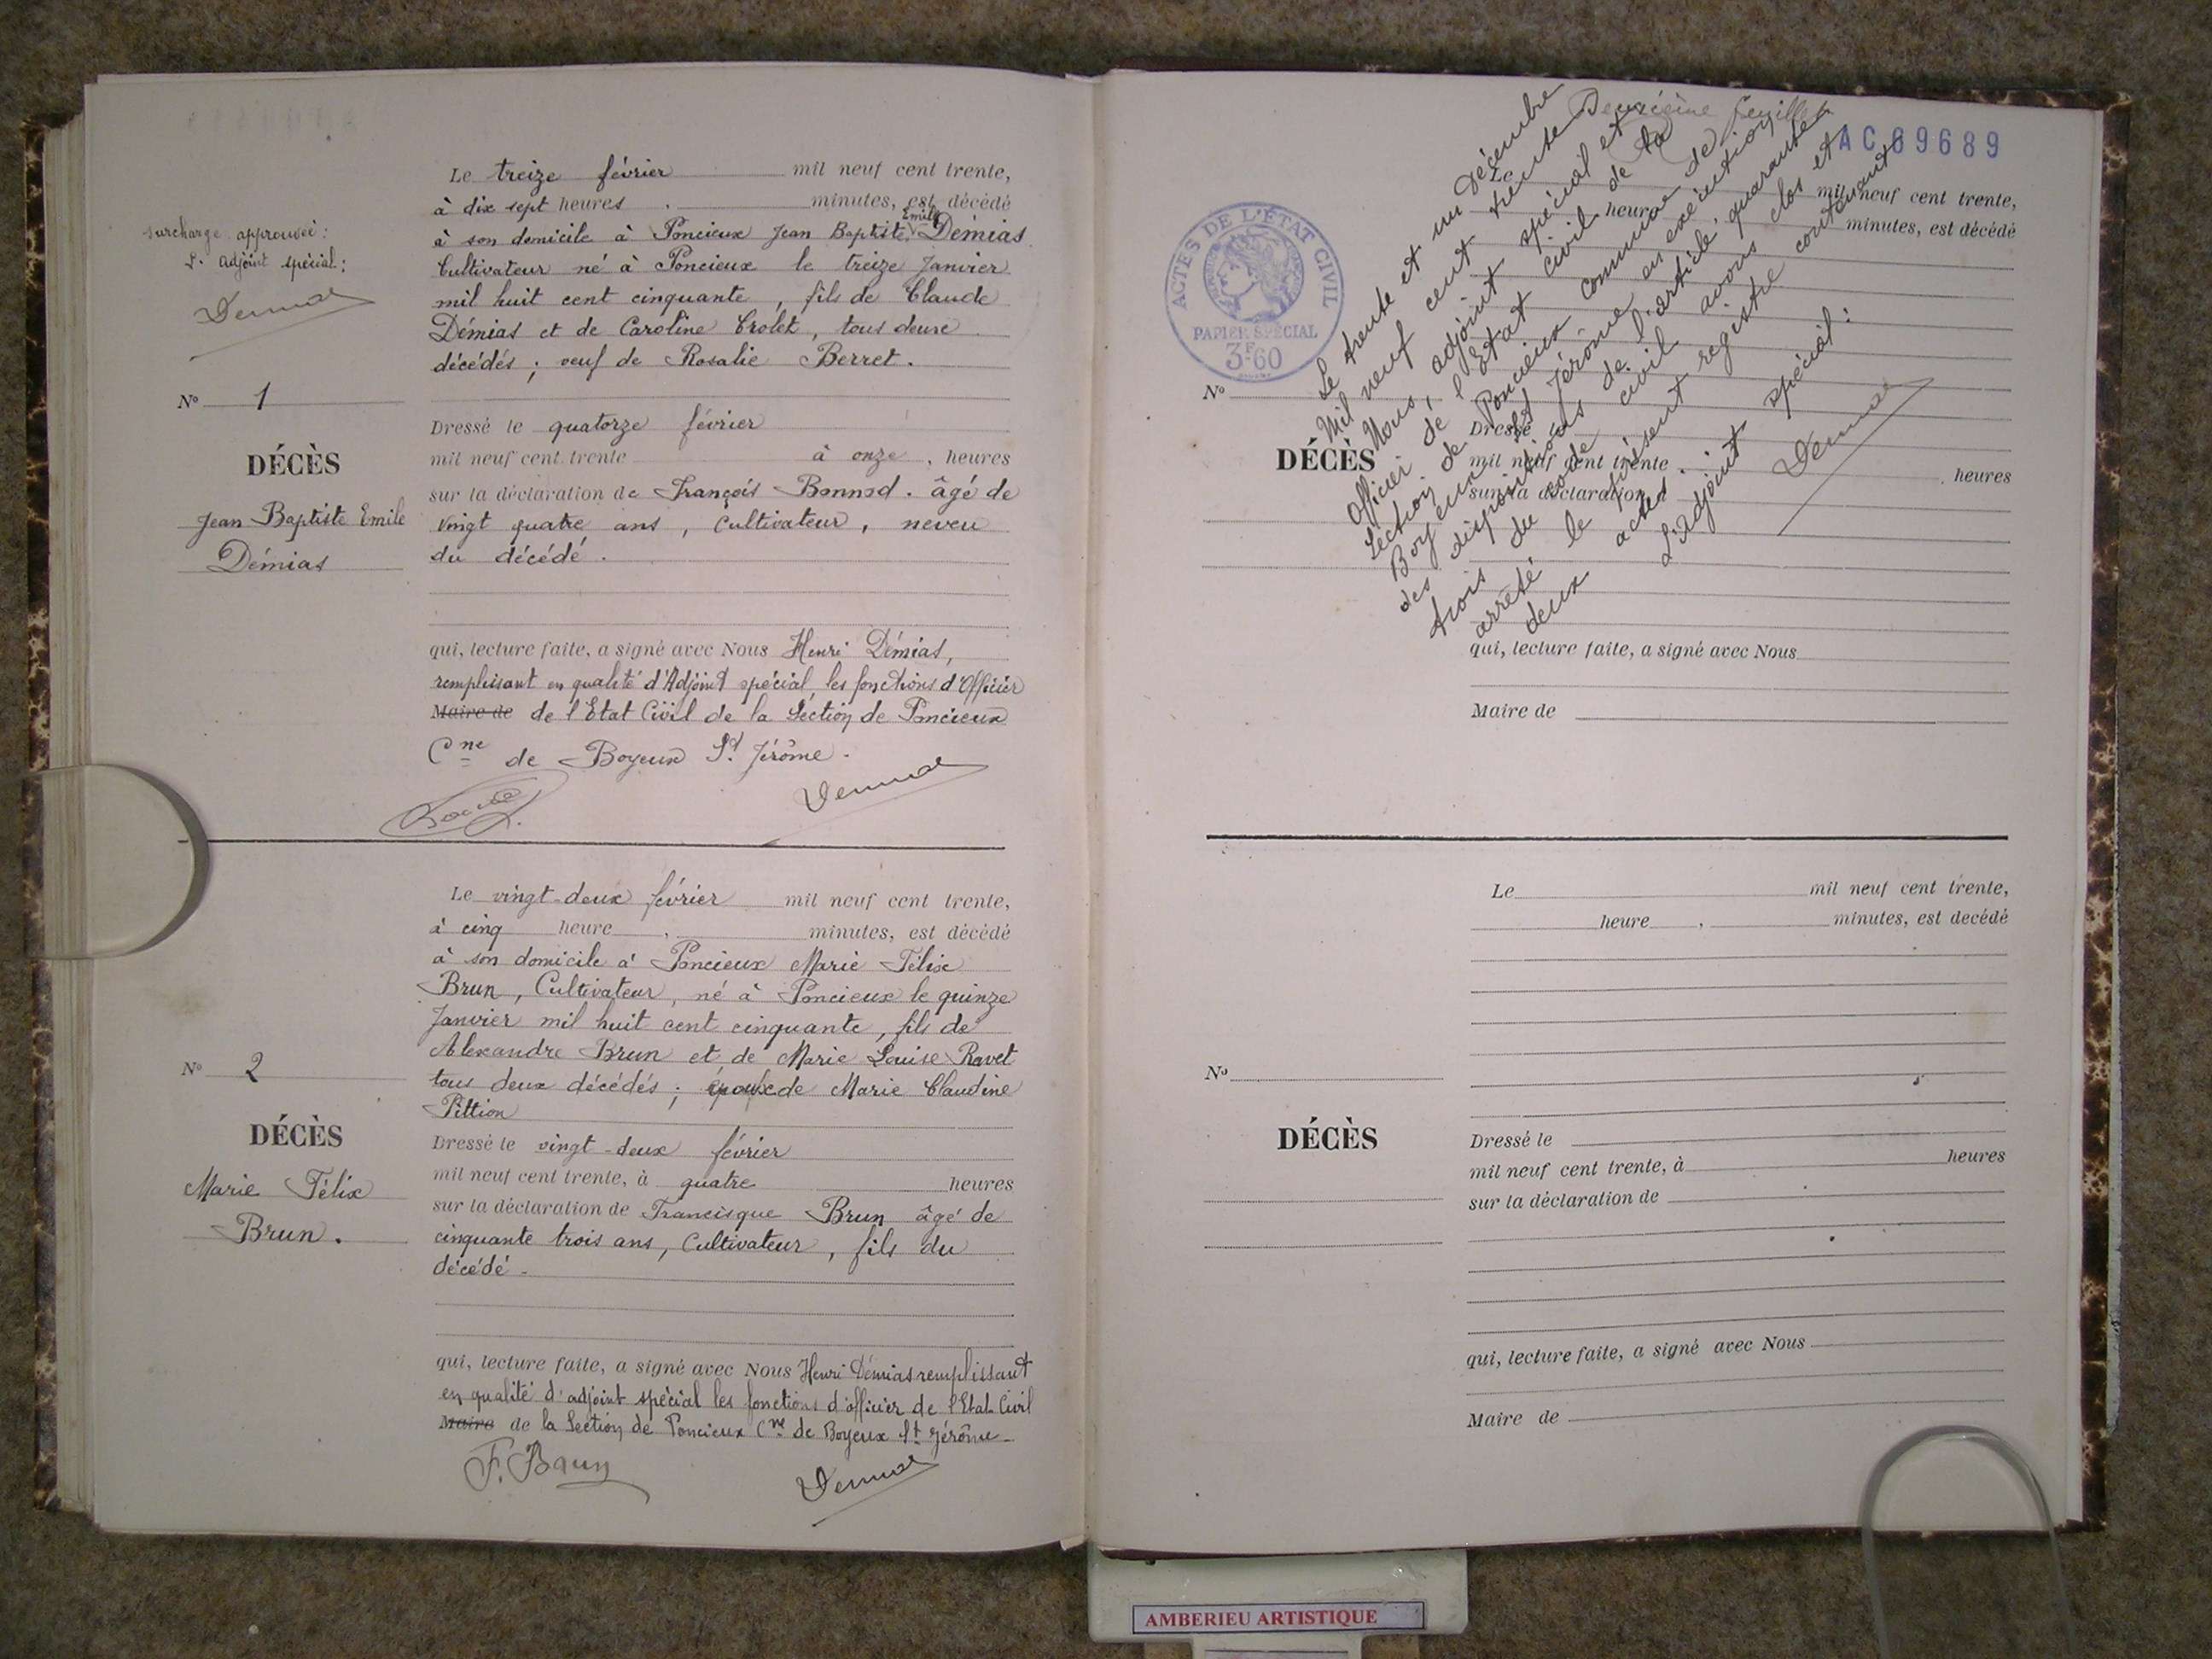 surcharge approuvée :
L'adjoint spécial :
Demias
Nº 1
DÉCÈS
Jean Baptiste Emile
Démias
Le treize février mil neuf cent trente,
à dix sept heures , minutes, est décédé
Emile
à son domicile à Poncieux Jean Baptiste Démias
Cultivateur né à Poncieux le treize Janvier
mil huit cent cinquante , fils de Claude
Démias et de Caroline Crolet, tous deux
décédés ; veuf de Rosalie Berret .
Dressé le quatorze février
mil neuf cent trente à onze , heures
sur la déclaration de François Bonnod . âgé de
vingt quatre ans , Cultivateur , neveu
du décédé .
qui, lecture faite, a signé avec Nous Henri Démias,
remplissant en qualité d'Adjoint spécial, les fonctions d'Officier
Maire de de l'Etat Civil de la Section de Poncieux
Cne de Boyeux St Jérôme .
Demias
Nº 2
DÉCÈS
Marie Félix
Brun .
Le vingt-deux février mil neuf cent trente,
à cinq heure , minutes, est décédé
à son domicile à Poncieux Marie Félix
Brun , Cultivateur , né à Poncieux le quinze
Janvier mil huit cent cinquante , fils de
Alexandre Brun et de Marie Louise Ravet
tous deux décédés ; époux de Marie Claudine
Pittion
Dressé le vingt-deux février
mil neuf cent trente, à quatre heures
sur la déclaration de Francisque Brun âgé de
cinquante trois ans, Cultivateur , fils du
décédé -
qui, lecture faite, a signé avec Nous Henri Démias remplissant
en qualité d'adjoint spécial les fonctions d'officier de l'Etat Civil
Maire de la Section de Poncieux Cne de Boyeux St Jérôme -
F. Brun
Demias
Deuxième feuillet
AC 69689
ACTES DE L'ÉTAT CIVIL
PAPIER SPÉCIAL
3F60
Le trente et un Décembre
Mil neuf cent trente
Nous, adjoint spécial et
Officier de l'Etat civil de la
Section de Poncieux commune de
Boyeux St Jérôme en exécution
des dispositions de l'article quarante
trois du code civil avons clos et
arrêté le présent registre contenant
deux actes .
L'Adjoint spécial :
Demias
Le mil neuf cent trente,
heure minutes, est décédé
Nº
DÉCÈS
Dressé le
mil neuf cent trente , heures
sur la déclaration
qui, lecture faite, a signé avec Nous
Maire de
Le mil neuf cent trente,
heure , minutes, est decédé
Nº
DÉCÈS
Dressé le
mil neuf cent trente, à heures
sur la déclaration de
qui, lecture faite, a signé avec Nous
Maire de
AMBERIEU ARTISTIQUE